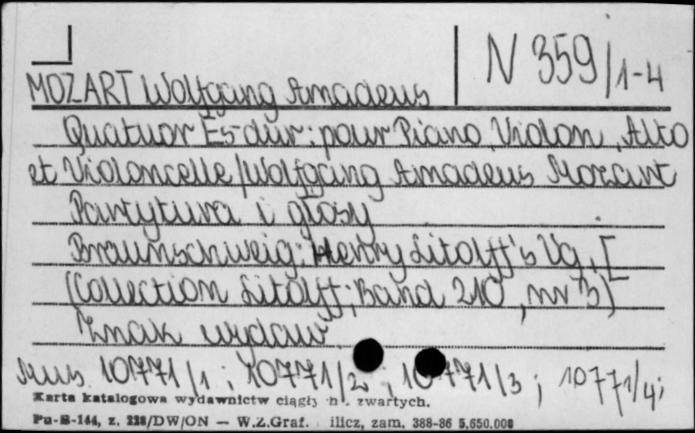 N 359/1-4
MOZART Wolfgang Amadeus
Quatuor Es-dur : pour Piano, Violon, Alto
et Violoncelle / Wolfgang Amadeus Mozart
Partytura i głosy
Braunschweig : Henry Litolff's Vg, [
(Collection Litolff ; Band 210, nr 3)
Znak wydaw
Mus. 10771/1 ; 10771/2 ; 10771/3 ; 10771/4 ;
Karta katalogowa wydawnictw zwartych.
Pu-B-144, z. 228/DW/ON — W.Z.Graf. zam. 388-86 5.650.000